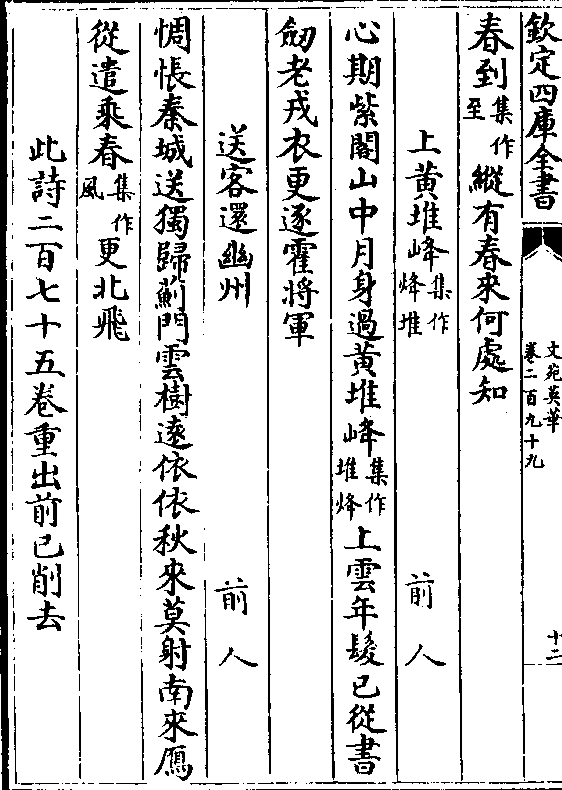 欽定四庫全書
文苑英華
卷二百九十九
十二
春到集作至縱有春來何處知
上黃堆峰集作烽堆
前人
心期紫閣山中月身過黃堆峰集作堆烽上雲年髮已從書
劒老戎衣更逐霍將軍
送客還幽州
前人
惆悵秦城送獨歸薊門雲樹遠依依秋來莫射南來鴈
從遣乘春集作風更北飛
此詩二百七十五卷重出前已削去